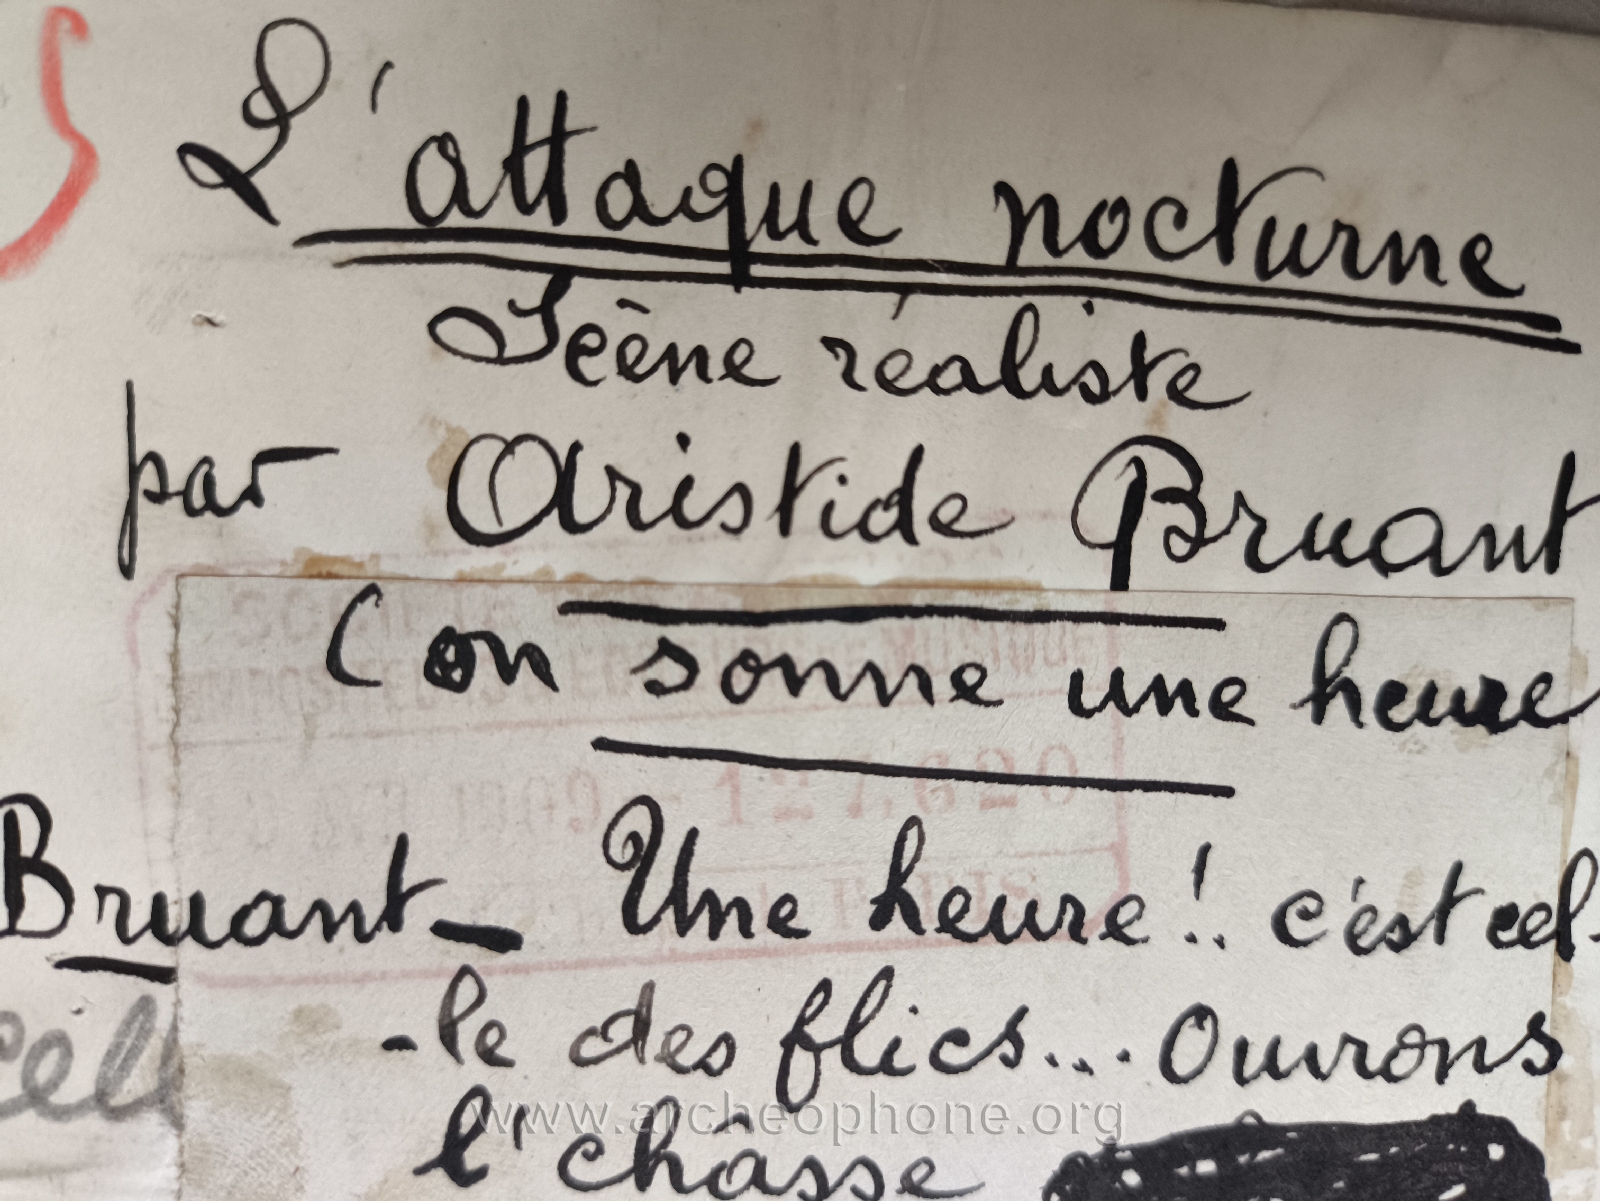 L'attaque nocturne
Scène réaliste
par Aristide Bruant
(on sonne une heure
Bruant - Une heure!.. c'est cel-
-le des flics... Ouvrons
l'châsse
cell
MUSIQUE
127.620
PARIS
www.archeophone.org